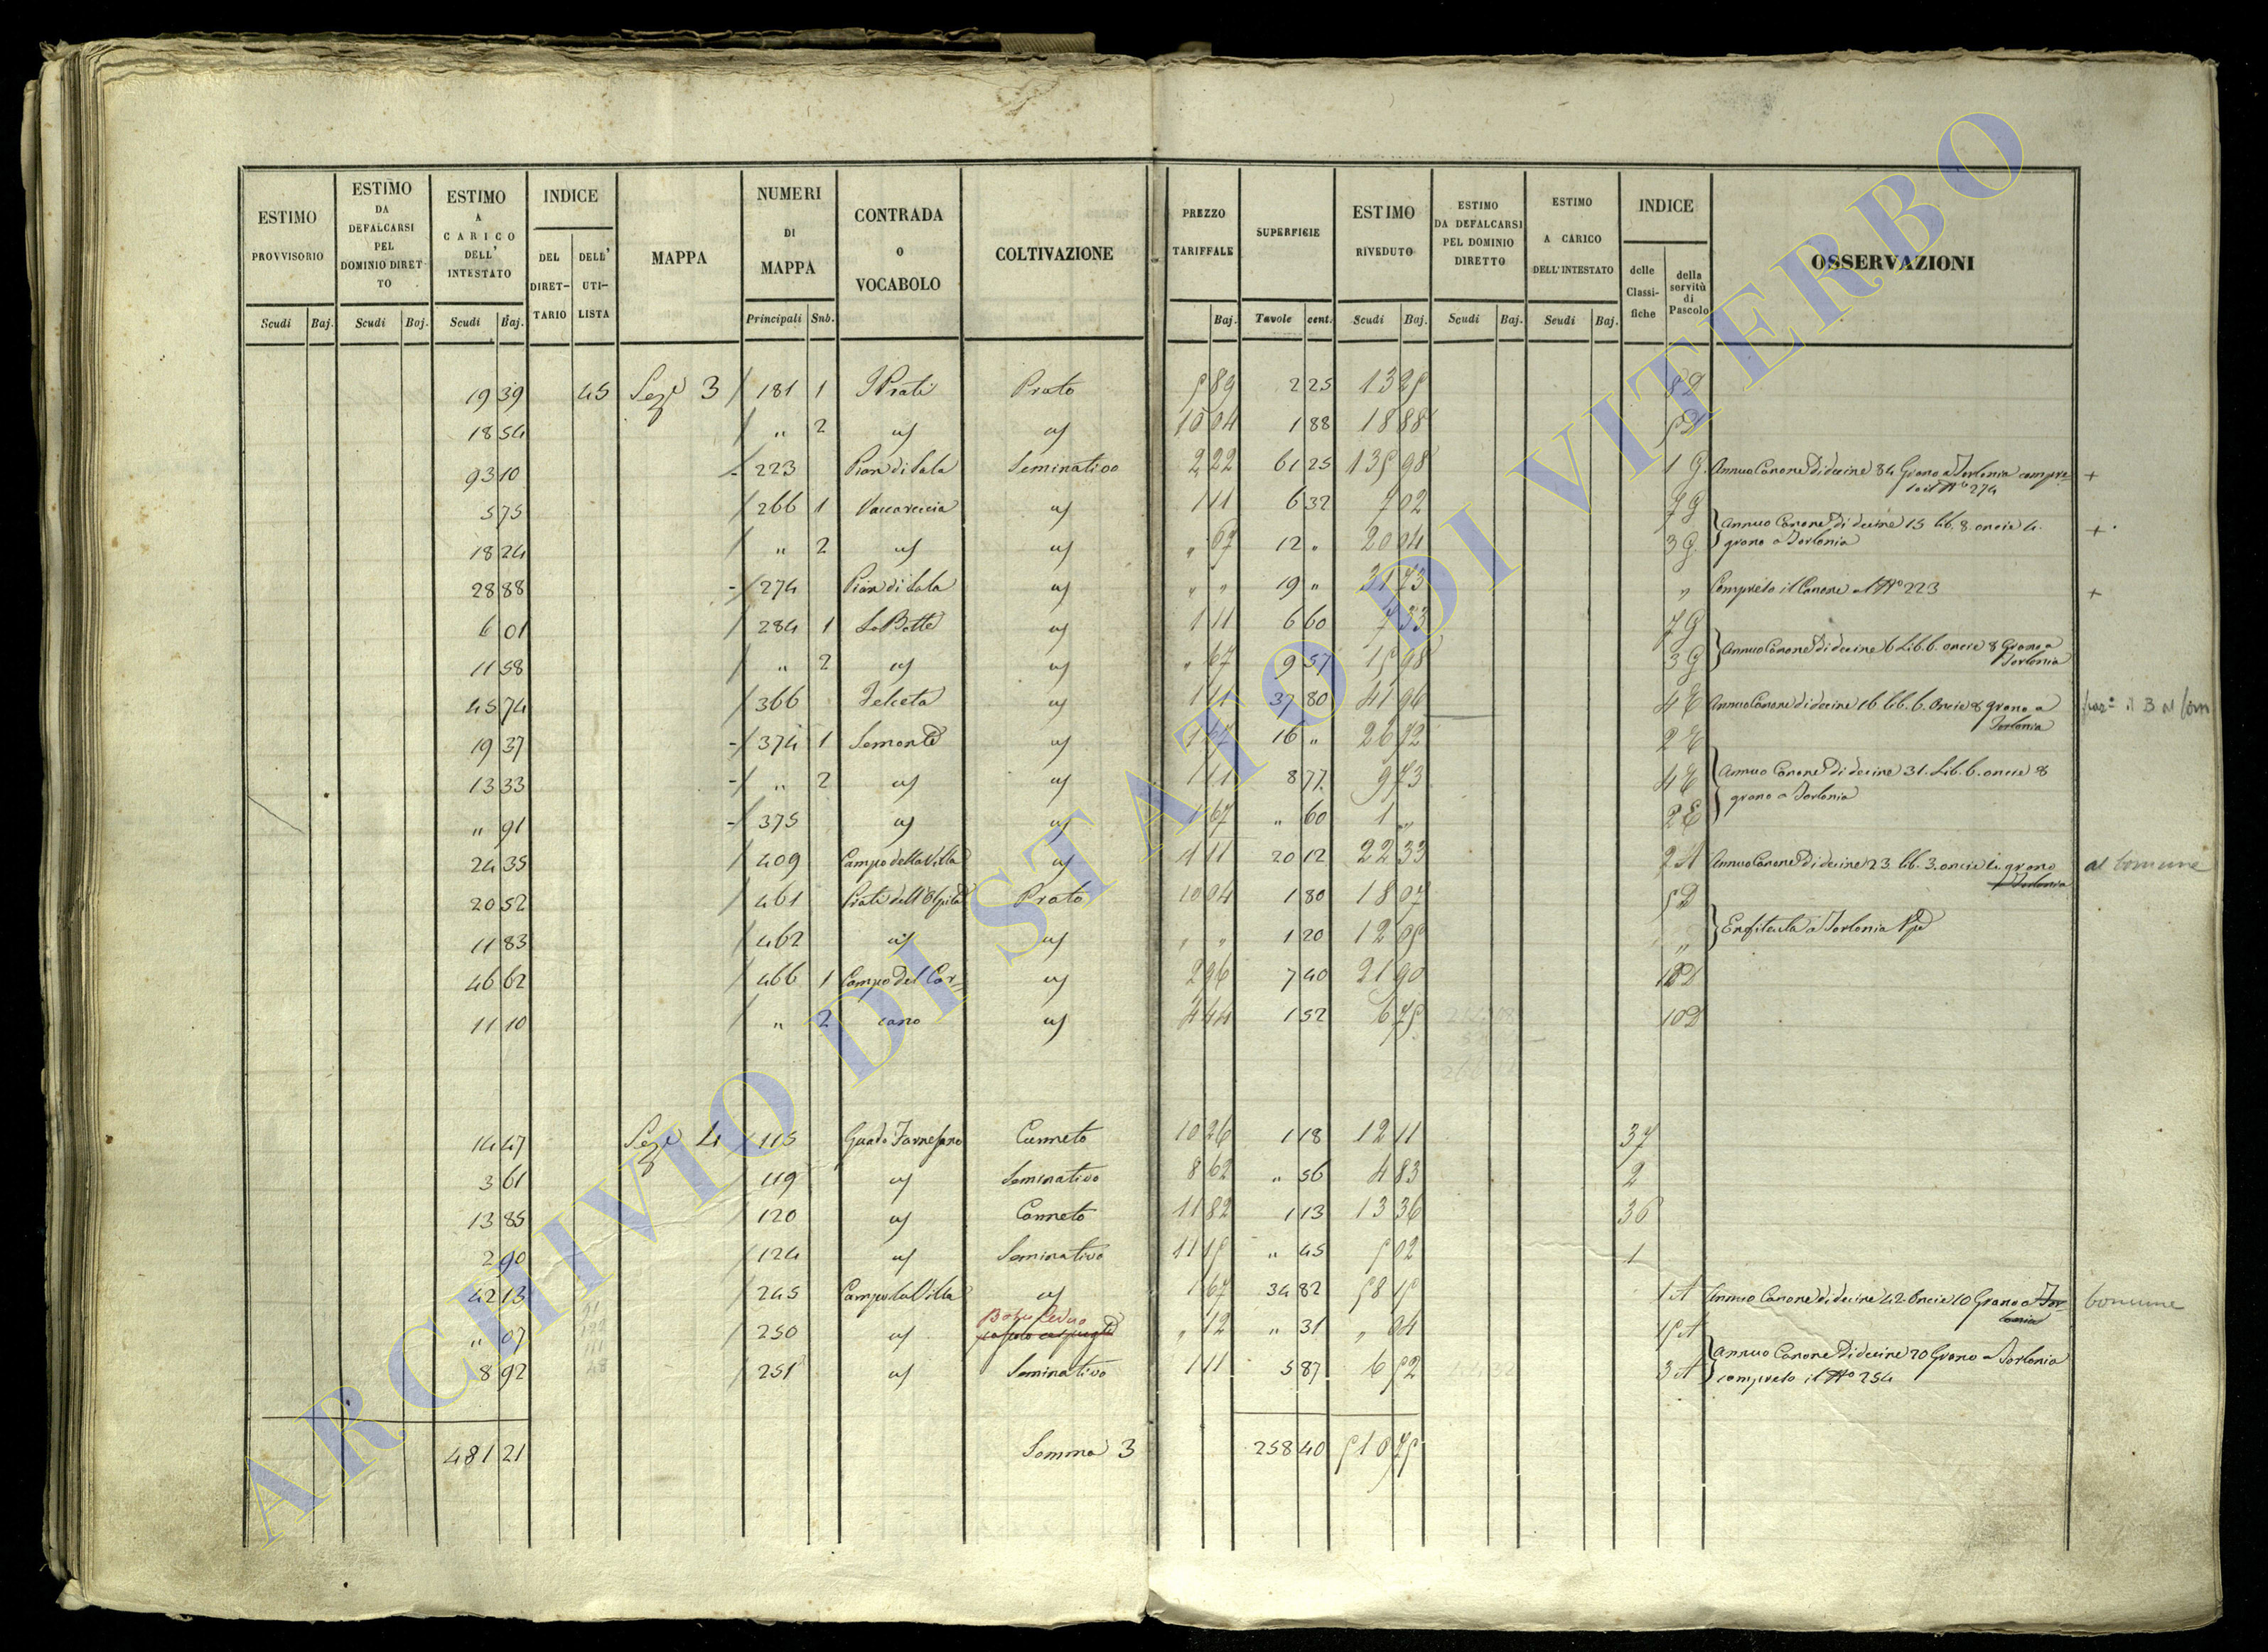 ESTIMO PROVVISORIO Scudi Baj.
ESTIMO DA DEFALCARSI PEL DOMINIO DIRETTO Scudi Baj.
ESTIMO A CARICO DELL' INTESTATO Scudi Baj.
INDICE DEL DIRETTARIO DELL' UTILISTA
MAPPA
NUMERI DI MAPPA Principali Sub.
CONTRADA O VOCABOLO
COLTIVAZIONE
PREZZO TARIFFALE Baj.
SUPERFICIE Tavole cent.
ESTIMO RIVEDUTO Scudi Baj.
ESTIMO DA DEFALCARSI PEL DOMINIO DIRETTO Scudi Baj.
ESTIMO A CARICO DELL'INTESTATO Scudi Baj.
INDICE delle Classifiche della servitù di Pascolo
OSSERVAZIONI
19 39 45 Sez.e 3 / 181 1 I Prati Prato 5 89 2 25 13 25 8 D
18 54 / " 2 us us 10 04 1 88 18 88 5 D
93 10 -/ 223 Pian di Sala Seminativo 2 22 61 25 135 98 1 G. Annuo Canone di decine 84 Grano a Torlonia compreso il N° 274 +
5 75 / 266 1 us 1 11 6 32 7 02 7 G
18 24 / " 2 us us " 67 12 " 20 04 3 G. Annuo Canone di decine 15 lib. 8. oncie 4. grano a Torlonia +
28 88 -/ 274 Pian di Sala us " " 19 " 31 73 " Compreso il Canone al N° 223 +
6 01 / 284 1 La Botte us 1 11 6 60 7 33 7 G
11 58 / " 2 us us " 67 9 57 15 98 3 G Annuo Canone di decine 6 Lib. 6. oncie 8 Grano a Torlonia
45 74 / 366 Felceta us 1 11 37 80 41 96 4 E Annuo Canone di decine 16 lib. 6. Oncie 8 grano a Torlonia
19 37 -/ 374 1 Semonte us 1 67 16 " 26 72 2 E
13 33 -/ " 2 us us 1 11 8 77 9 73 4 E Annuo Canone di decine 31. Lib. 6. oncie 8
" 91 -/ 375 us us 1 67 " 60 1 " 2 E grano a Torlonia
24 35 / 409 Campo della Villa us 1 11 20 12 22 33 2 A Annuo Canone di decine 23. lib. 3. oncie 4. grano a Torlonia al Comune
20 52 / 461 Prato dell'Ospita Prato 10 04 1 80 18 07 5 D
11 83 / 462 us us " " 1 20 12 05 " Enfiteuta a Torlonia
46 62 / 466 1 Campo del Cor- us 2 96 7 40 21 90 D
11 10 / " 2 cano us 4 44 1 52 6 75 10 D
14 47 Sez.e 4 / 115 Guado Farnesano Canneto 10 26 1 18 12 11 37
3 61 / 119 us Seminativo 8 62 " 56 4 83 2
13 85 / 120 us Canneto 11 82 1 13 13 36 36
2 90 / 124 us Seminativo 11 15 " 45 5 02 1
42 13 / 245 Campo la Villa us 1 67 34 82 58 15 1 A Annuo Canone di decine 42. Oncie 10 Grano a Torlonia Comune
" 07 / 250 us Bosco Ceduo " 12 " 31 " 04 15 A
8 92 / 251 us Seminativo 1 11 5 87 6 52 3 A Annuo Canone di decine 20 Grano a Torlonia compreso il N° 254
481 21 Somma 3 258 40 510 75
ARCHIVIO DI STATO DI VITERBO